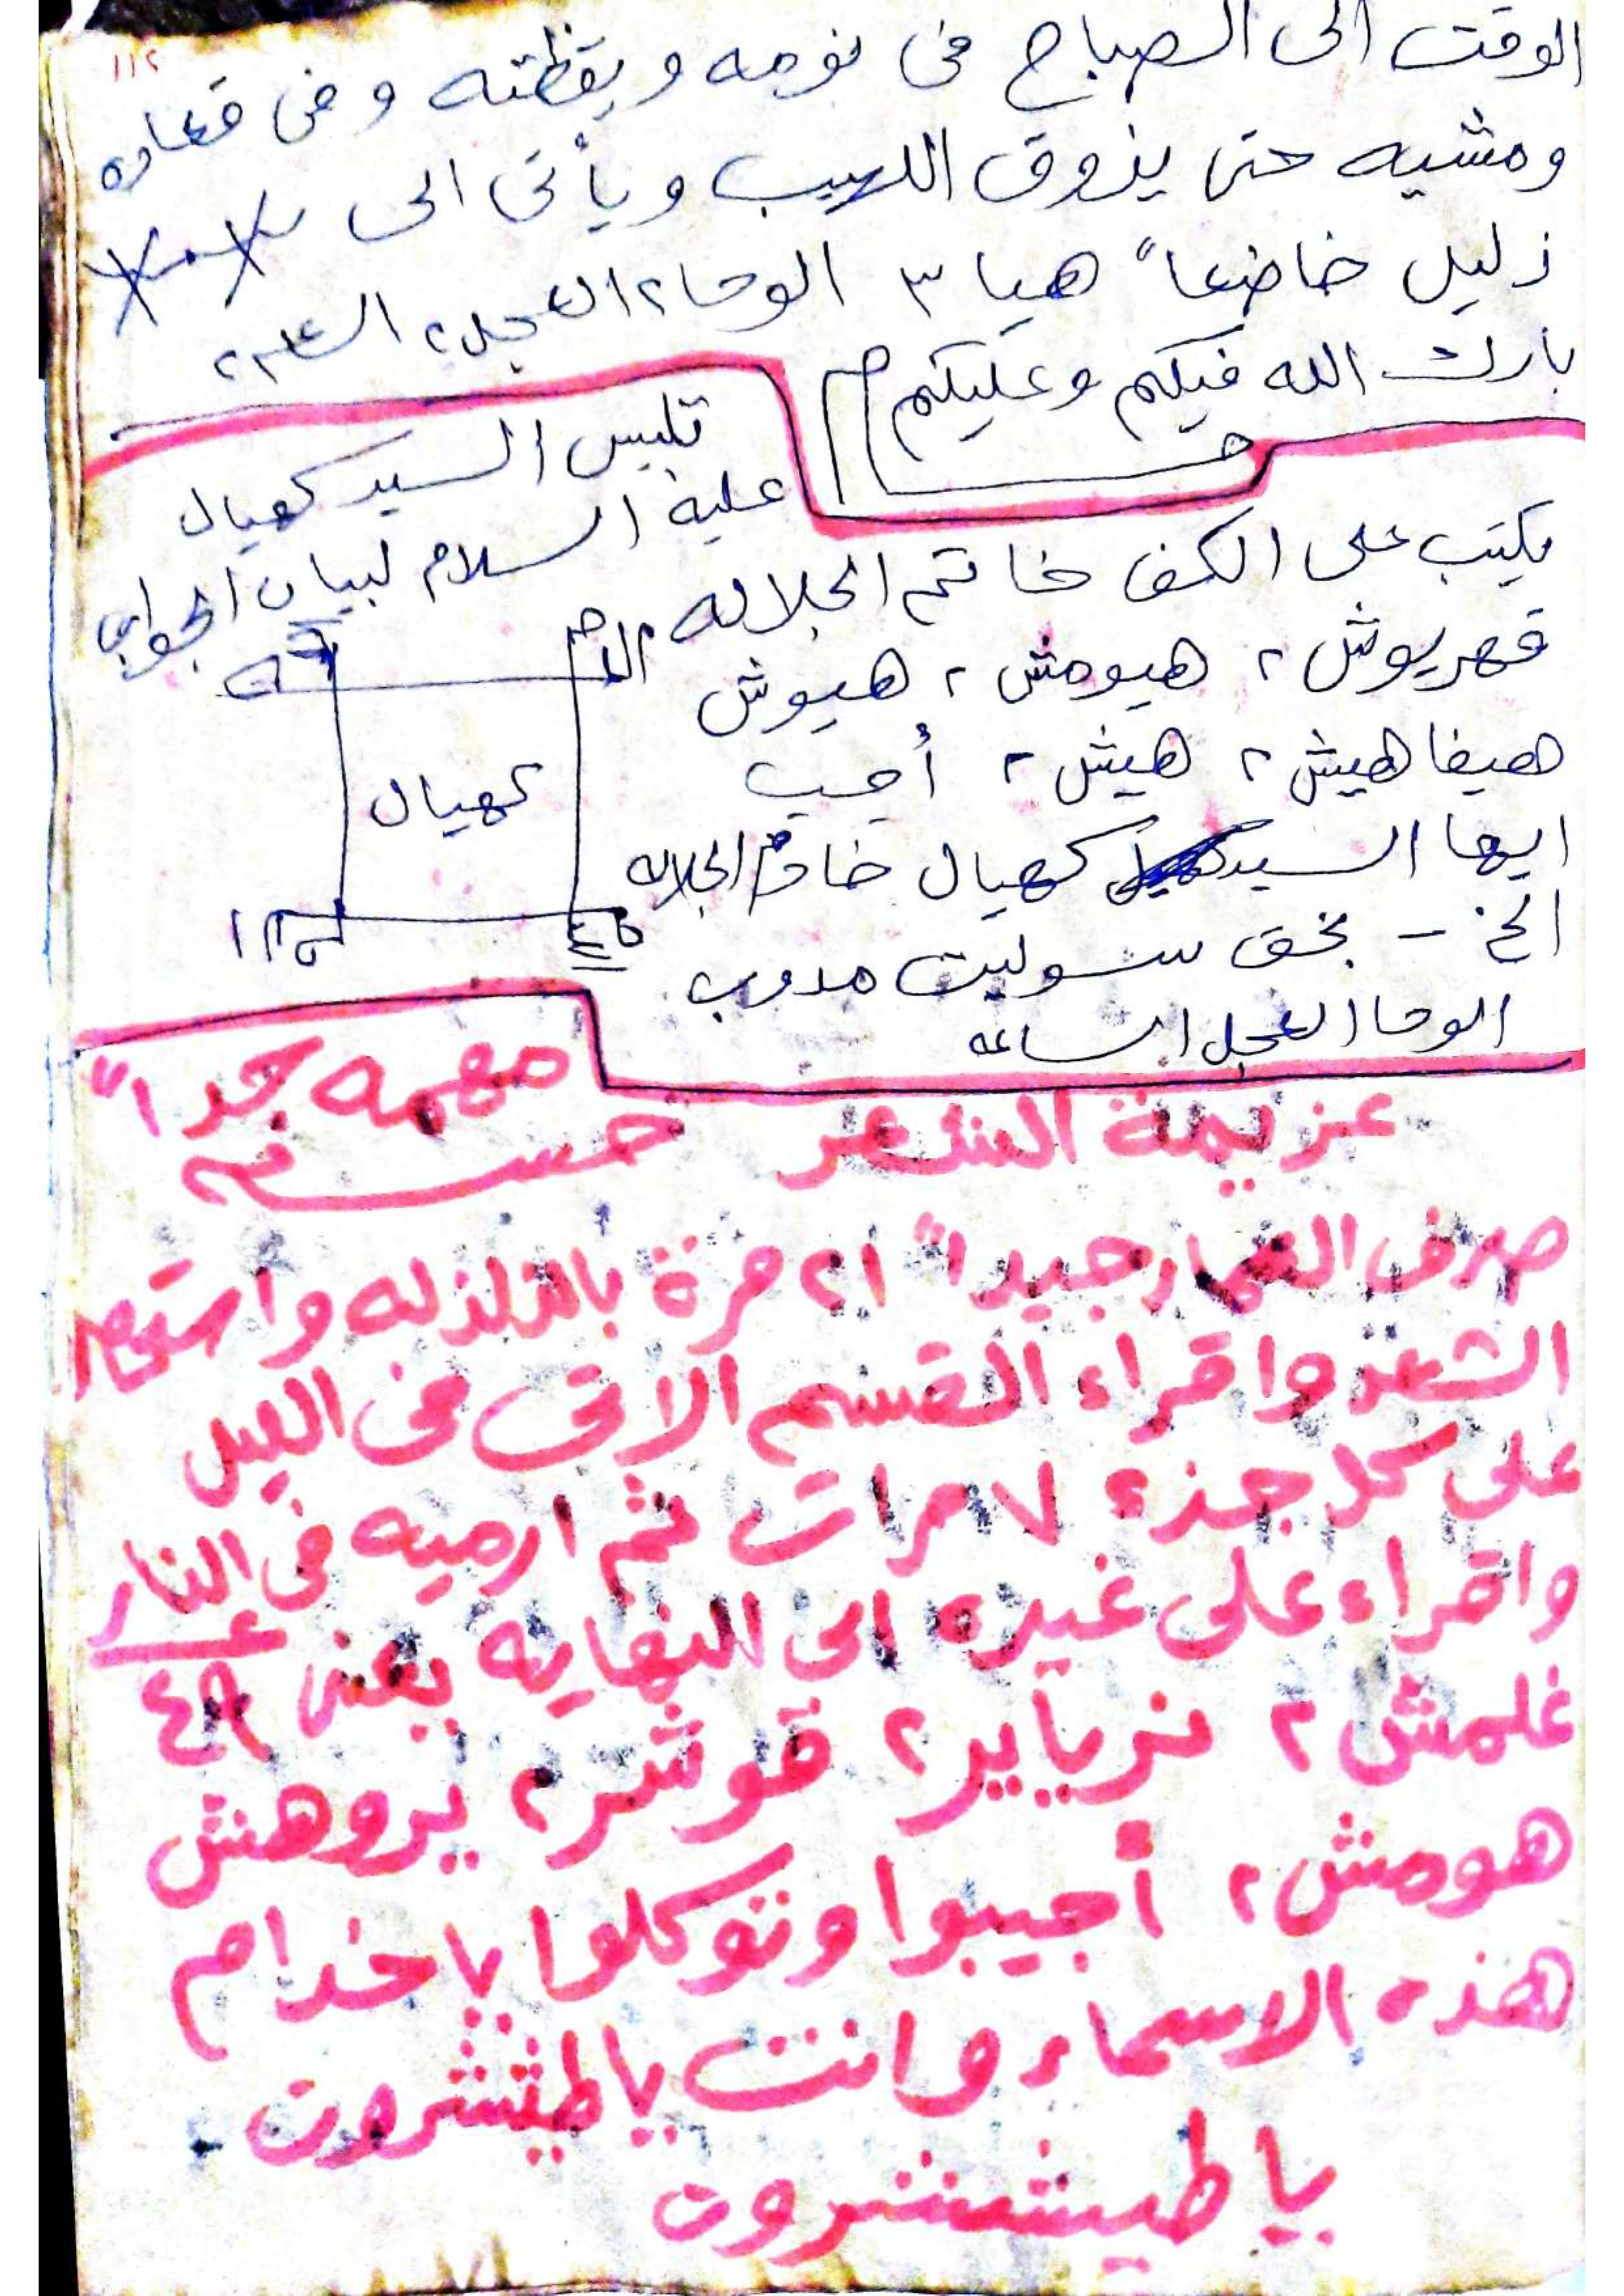 ١١٢
الوقت الى الصباح فى نومه ويقظته وفى قعاده
ومشيه حتى يذوق اللهيب ويأتى الى
ذليل خاضعا" هيا ٣ الوحا٢ العجل٢ الساعه٢
بارك الله فيكم وعليكم
تلبس السيد كهيال
عليه السلام لبيان الجواب
يكتب على الكف خاتم الجلاله
قهريوش ٢ هيومش ٢ هيوش
هيفا هيش ٢ هيش ٢ أجب
ايها السيد كهيال خادم الجلاله
الخ - بحق سوليت مدوب
الوحا العجل الساعه
كهيال
مهمه جدا"
عزيمة الشعر حسنه
صرف العمار جيدا" ٢١ مرة بالزلزله واستحضر
الشعر واقراء القسم الاتى فى الليل
على كل جزء ٧ مرات ثم ارميه فى النار
واقراء على غيره الى النهايه يعنى ٤٩
غلمش ٢ نريايير ٢ قوشر ٢ يروهش
هومش ٢ أجيبوا وتوكلوا يا خدام
هذه الاسماء وانت يا طيششروت
يا طيششروت